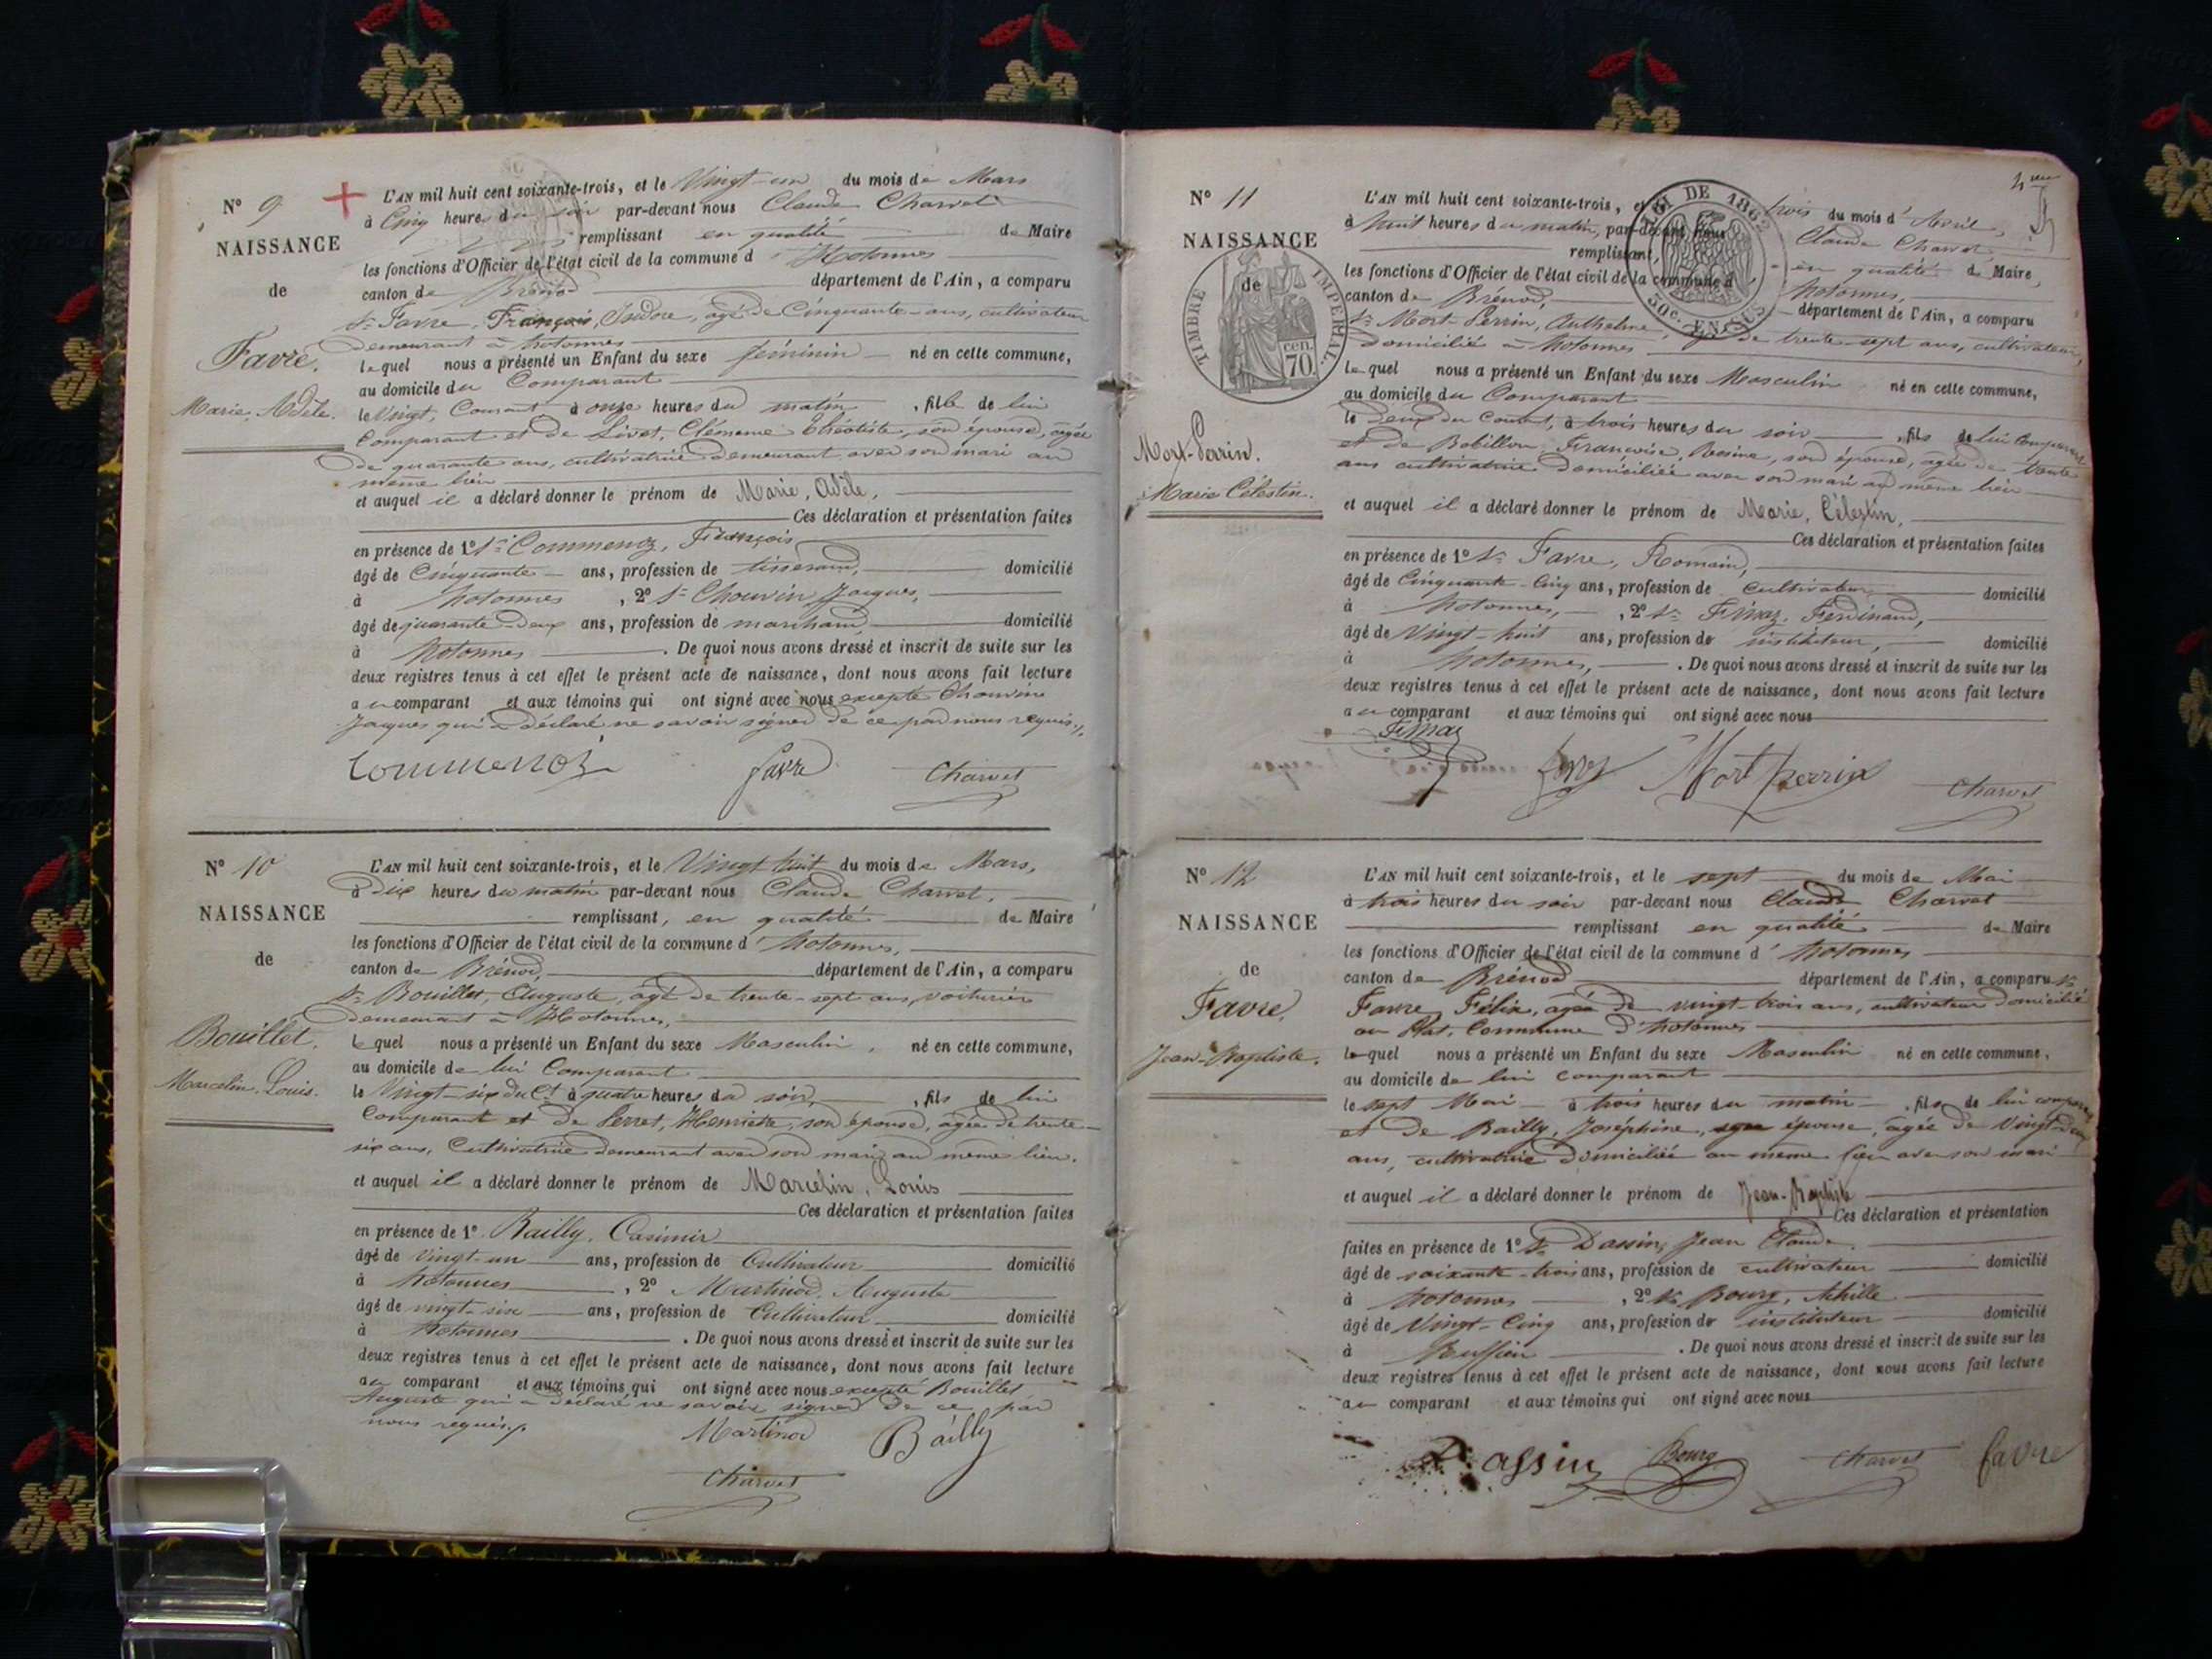 N° 9
NAISSANCE
de
Favre.
Marie, Adèle.
L'AN mil huit cent soixante-trois, et le Vingt-un du mois de Mars
à Cinq heures du soir par-devant nous Claude Charvet
remplissant en qualité de Maire
les fonctions d'Officier de l'état civil de la commune d'Hotonnes
canton de Brénod département de l'Ain, a comparu
Sr Favre, François, Isidore, agé de Cinquante-ans, cultivateur
demeurant à hotonnes
lequel nous a présenté un Enfant du sexe féminin né en cette commune,
au domicile du Comparant
le Vingt, Courant à onze heures du matin, fille de lui
Comparant et de Livet, Clémence son épouse, agée
de quarante ans, cultivatrice demeurant avec son mari au
même lieu
et auquel il a déclaré donner le prénom de Marie, Adèle,
Ces déclaration et présentation faites
en présence de 1° Sr Commenoz, François
âgé de Cinquante ans, profession de tisserand, domicilié
à hotonnes, 2° Sr Chouvin Jacques,
âgé de quarante-deux ans, profession de marchand, domicilié
à hotonnes. De quoi nous avons dressé et inscrit de suite sur les
deux registres tenus à cet effet le présent acte de naissance, dont nous avons fait lecture
au comparant et aux témoins qui ont signé avec nous excepté Chouvin
Jacques qui a déclaré ne savoir signer de ce par nous requis.
Commenoz favre Charvet
N° 10
NAISSANCE
de
Bouillet.
Marcelin, Louis.
L'AN mil huit cent soixante-trois, et le Vingt huit du mois de Mars,
à dix heures du matin par-devant nous Claude Charvet,
remplissant, en qualité de Maire
les fonctions d'Officier de l'état civil de la commune d'hotonnes,
canton de Brénod, département de l'Ain, a comparu
Sr Bouillet, Auguste, âgé de trente-sept ans, voiturier
demeurant à Hotonnes,
lequel nous a présenté un Enfant du sexe Masculin, né en cette commune,
au domicile de lui Comparant
le Vingt-six du Ct à quatre heures du soir, fils de lui
Comparant et de Perret, Henriette, son épouse, agée de trente-
six ans, Cultivatrice demeurant avec son mari au même lieu.
et auquel il a déclaré donner le prénom de Marcelin, Louis
Ces déclaration et présentation faites
en présence de 1° Bailly, Casimir
âgé de vingt-un ans, profession de Cultivateur domicilié
à hotonnes, 2° Martinod, Auguste
âgé de vingt-six ans, profession de Cultivateur domicilié
à hotonnes. De quoi nous avons dressé et inscrit de suite sur les
deux registres tenus à cet effet le présent acte de naissance, dont nous avons fait lecture
au comparant et aux témoins qui ont signé avec nous excepté Bouillet
Auguste qui a déclaré ne savoir signer de ce par
nous requis.
Martinod Bailly
Charvet
N° 11
NAISSANCE
de
TIMBRE IMPÉRIAL
70 cen.
Mort-Perrin.
Marie Célestin.
LOI DE 1862
50c. EN SUS
L'AN mil huit cent soixante-trois, et le trois du mois d'Avril,
à huit heures du matin, par-devant nous Claude Charvet,
remplissant, en qualité de Maire,
les fonctions d'Officier de l'état civil de la commune d'hotonnes,
canton de Brénod, département de l'Ain, a comparu
Sr Mort-Perrin, Anthelme, agé de trente-sept ans, cultivateur,
domicilié à hotonnes
lequel nous a présenté un Enfant du sexe Masculin né en cette commune,
au domicile du Comparant
le deux du Court, à trois heures du soir, fils de lui Comparant
et de Bobillon, Françoise, Rosine, son épouse, agée de trente
ans cultivatrice domiciliée avec son mari au même lieu
et auquel il a déclaré donner le prénom de Marie, Célestin,
Ces déclaration et présentation faites
en présence de 1° Sr Favre, Romain,
âgé de Cinquante-Cinq ans, profession de Cultivateur domicilié
à hotonnes, 2° Sr Finaz, Ferdinand,
âgé de Vingt-huit ans, profession de instituteur, domicilié
à hotonnes, . De quoi nous avons dressé et inscrit de suite sur les
deux registres tenus à cet effet le présent acte de naissance, dont nous avons fait lecture
au comparant et aux témoins qui ont signé avec nous
Finaz
Mort perrin Charvet
N° 12
NAISSANCE
de
Favre.
Jean-Baptiste.
L'AN mil huit cent soixante-trois, et le sept du mois de Mai
à trois heures du soir par-devant nous Claude Charvet
remplissant en qualité de Maire
les fonctions d'Officier de l'état civil de la commune d'hotonnes
canton de Brénod département de l'Ain, a comparu Sr
Favre, Félix, agée de vingt-trois ans, cultivateur domicilié
au Plat, Commune d'hotonnes
lequel nous a présenté un Enfant du sexe Masculin né en cette commune,
au domicile de lui comparant
le sept Mai à trois heures du matin, fils de lui comparant
et de Bailly, Joséphine, épouse, agée de Vingt deux
ans, cultivatrice domiciliée au même lieu avec son mari
et auquel il a déclaré donner le prénom de Jean-Baptiste
Ces déclaration et présentation
faites en présence de 1° Sr Dassin, Jean Claude.
âgé de soixante-trois ans, profession de cultivateur domicilié
à hotonnes, 2° Sr Bourg, Achille
âgé de Vingt-Cinq ans, profession de instituteur domicilié
à Ruffieu. De quoi nous avons dressé et inscrit de suite sur les
deux registres tenus à cet effet le présent acte de naissance, dont nous avons fait lecture
au comparant et aux témoins qui ont signé avec nous
Dassin Bourg Charvet favre